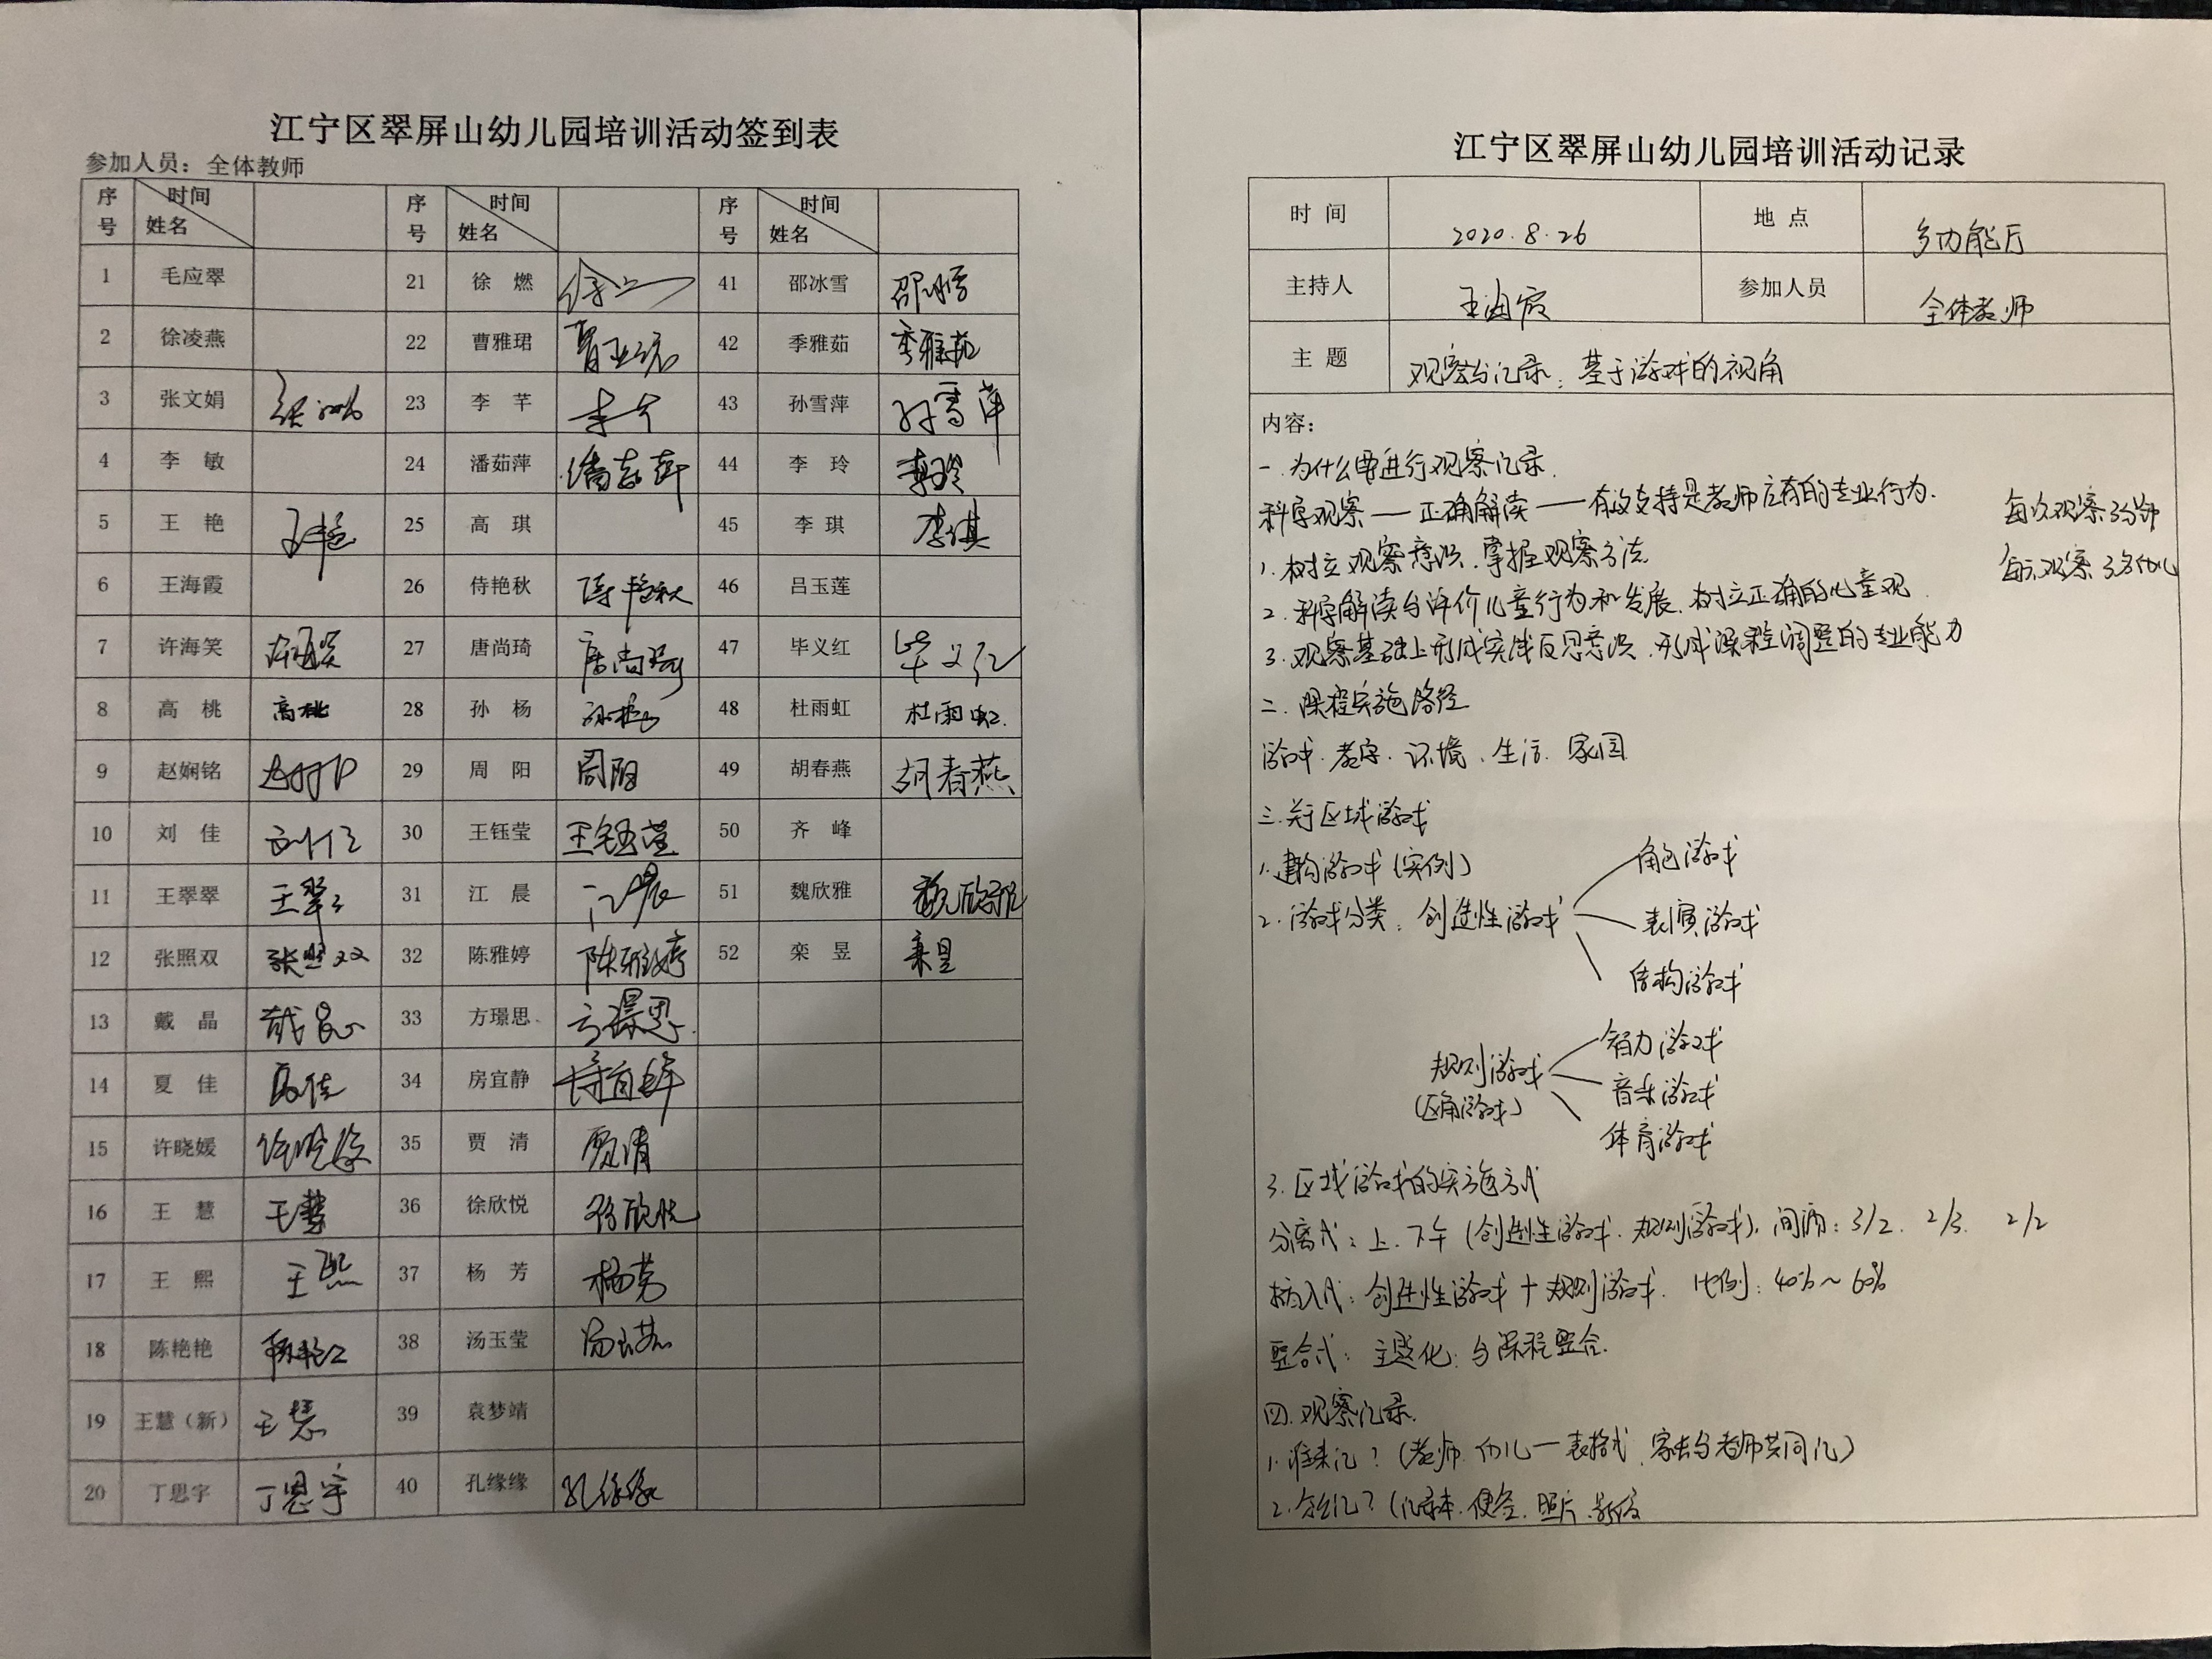 江宁区翠屏山幼儿园培训活动签到表
参加人员：全体教师
序号 时间 姓名 序号 时间 姓名 序号 时间 姓名
1 毛应翠 21 徐燃 41 邵冰雪 邵冰雪
2 徐凌燕 22 曹雅珺 42 季雅茹 季雅茹
3 张文娟 23 李芊 李芊 43 孙雪萍 孙雪萍
4 李敏 24 潘茹萍 潘茹萍 44 李玲 李玲
5 王艳 王艳 25 高琪 45 李琪 李琪
6 王海霞 26 侍艳秋 侍艳秋 46 吕玉莲
7 许海笑 27 唐尚琦 唐尚琦 47 毕义红 毕义红
8 高桃 高桃 28 孙杨 孙杨 48 杜雨虹 杜雨虹
9 赵娴铭 29 周阳 周阳 49 胡春燕 胡春燕
10 刘佳 刘佳 30 王钰莹 王钰莹 50 齐峰
11 王翠翠 王翠翠 31 江晨 江晨 51 魏欣雅 魏欣雅
12 张照双 张照双 32 陈雅婷 陈雅婷 52 栾昱 栾昱
13 戴晶 戴晶 33 方璟思 方璟思
14 夏佳 夏佳 34 房宜静
15 许晓媛 许晓媛 35 贾清 贾清
16 王慧 王慧 36 徐欣悦 徐欣悦
17 王熙 王熙 37 杨芳 杨芳
18 陈艳艳 38 汤玉莹 汤玉莹
19 王慧（新） 王慧 39 袁梦靖
20 丁思宇 丁思宇 40 孔缘缘 孔缘缘
江宁区翠屏山幼儿园培训活动记录
时间 2020.8.26 地点 多功能厅
主持人 王海霞 参加人员 全体教师
主题 观察与记录：基于游戏的视角
内容：
一.为什么要进行观察记录.
科学观察——正确解读——有效支持是教师应有的专业行为.
每次观察3分钟
1.树立观察意识.掌握观察方法
每次观察3名幼儿
2.科学解读与评价儿童行为和发展.树立正确的儿童观
3.观察基础上形成实践反思意识.形成课程调整的专业能力
二.课程实施路径
游戏.教学.环境.生活.家园
三.关于区域游戏
1.建构游戏（实例）
角色游戏
2.游戏分类：创造性游戏
表演游戏
结构游戏
智力游戏
规则游戏
音乐游戏
（区角游戏）
体育游戏
3.区域游戏的实施方式
分离式：上.下午（创造性游戏.规则游戏）.间周：3/2. 2/3. 2/2
插入式：创造性游戏+规则游戏. 比例：40%～60%
整合式：主题化：与课程整合.
四.观察记录.
1.谁来记？（教师.幼儿—表格式.家长与老师共同记）
2.怎么记？（记录本.便签.照片.录像